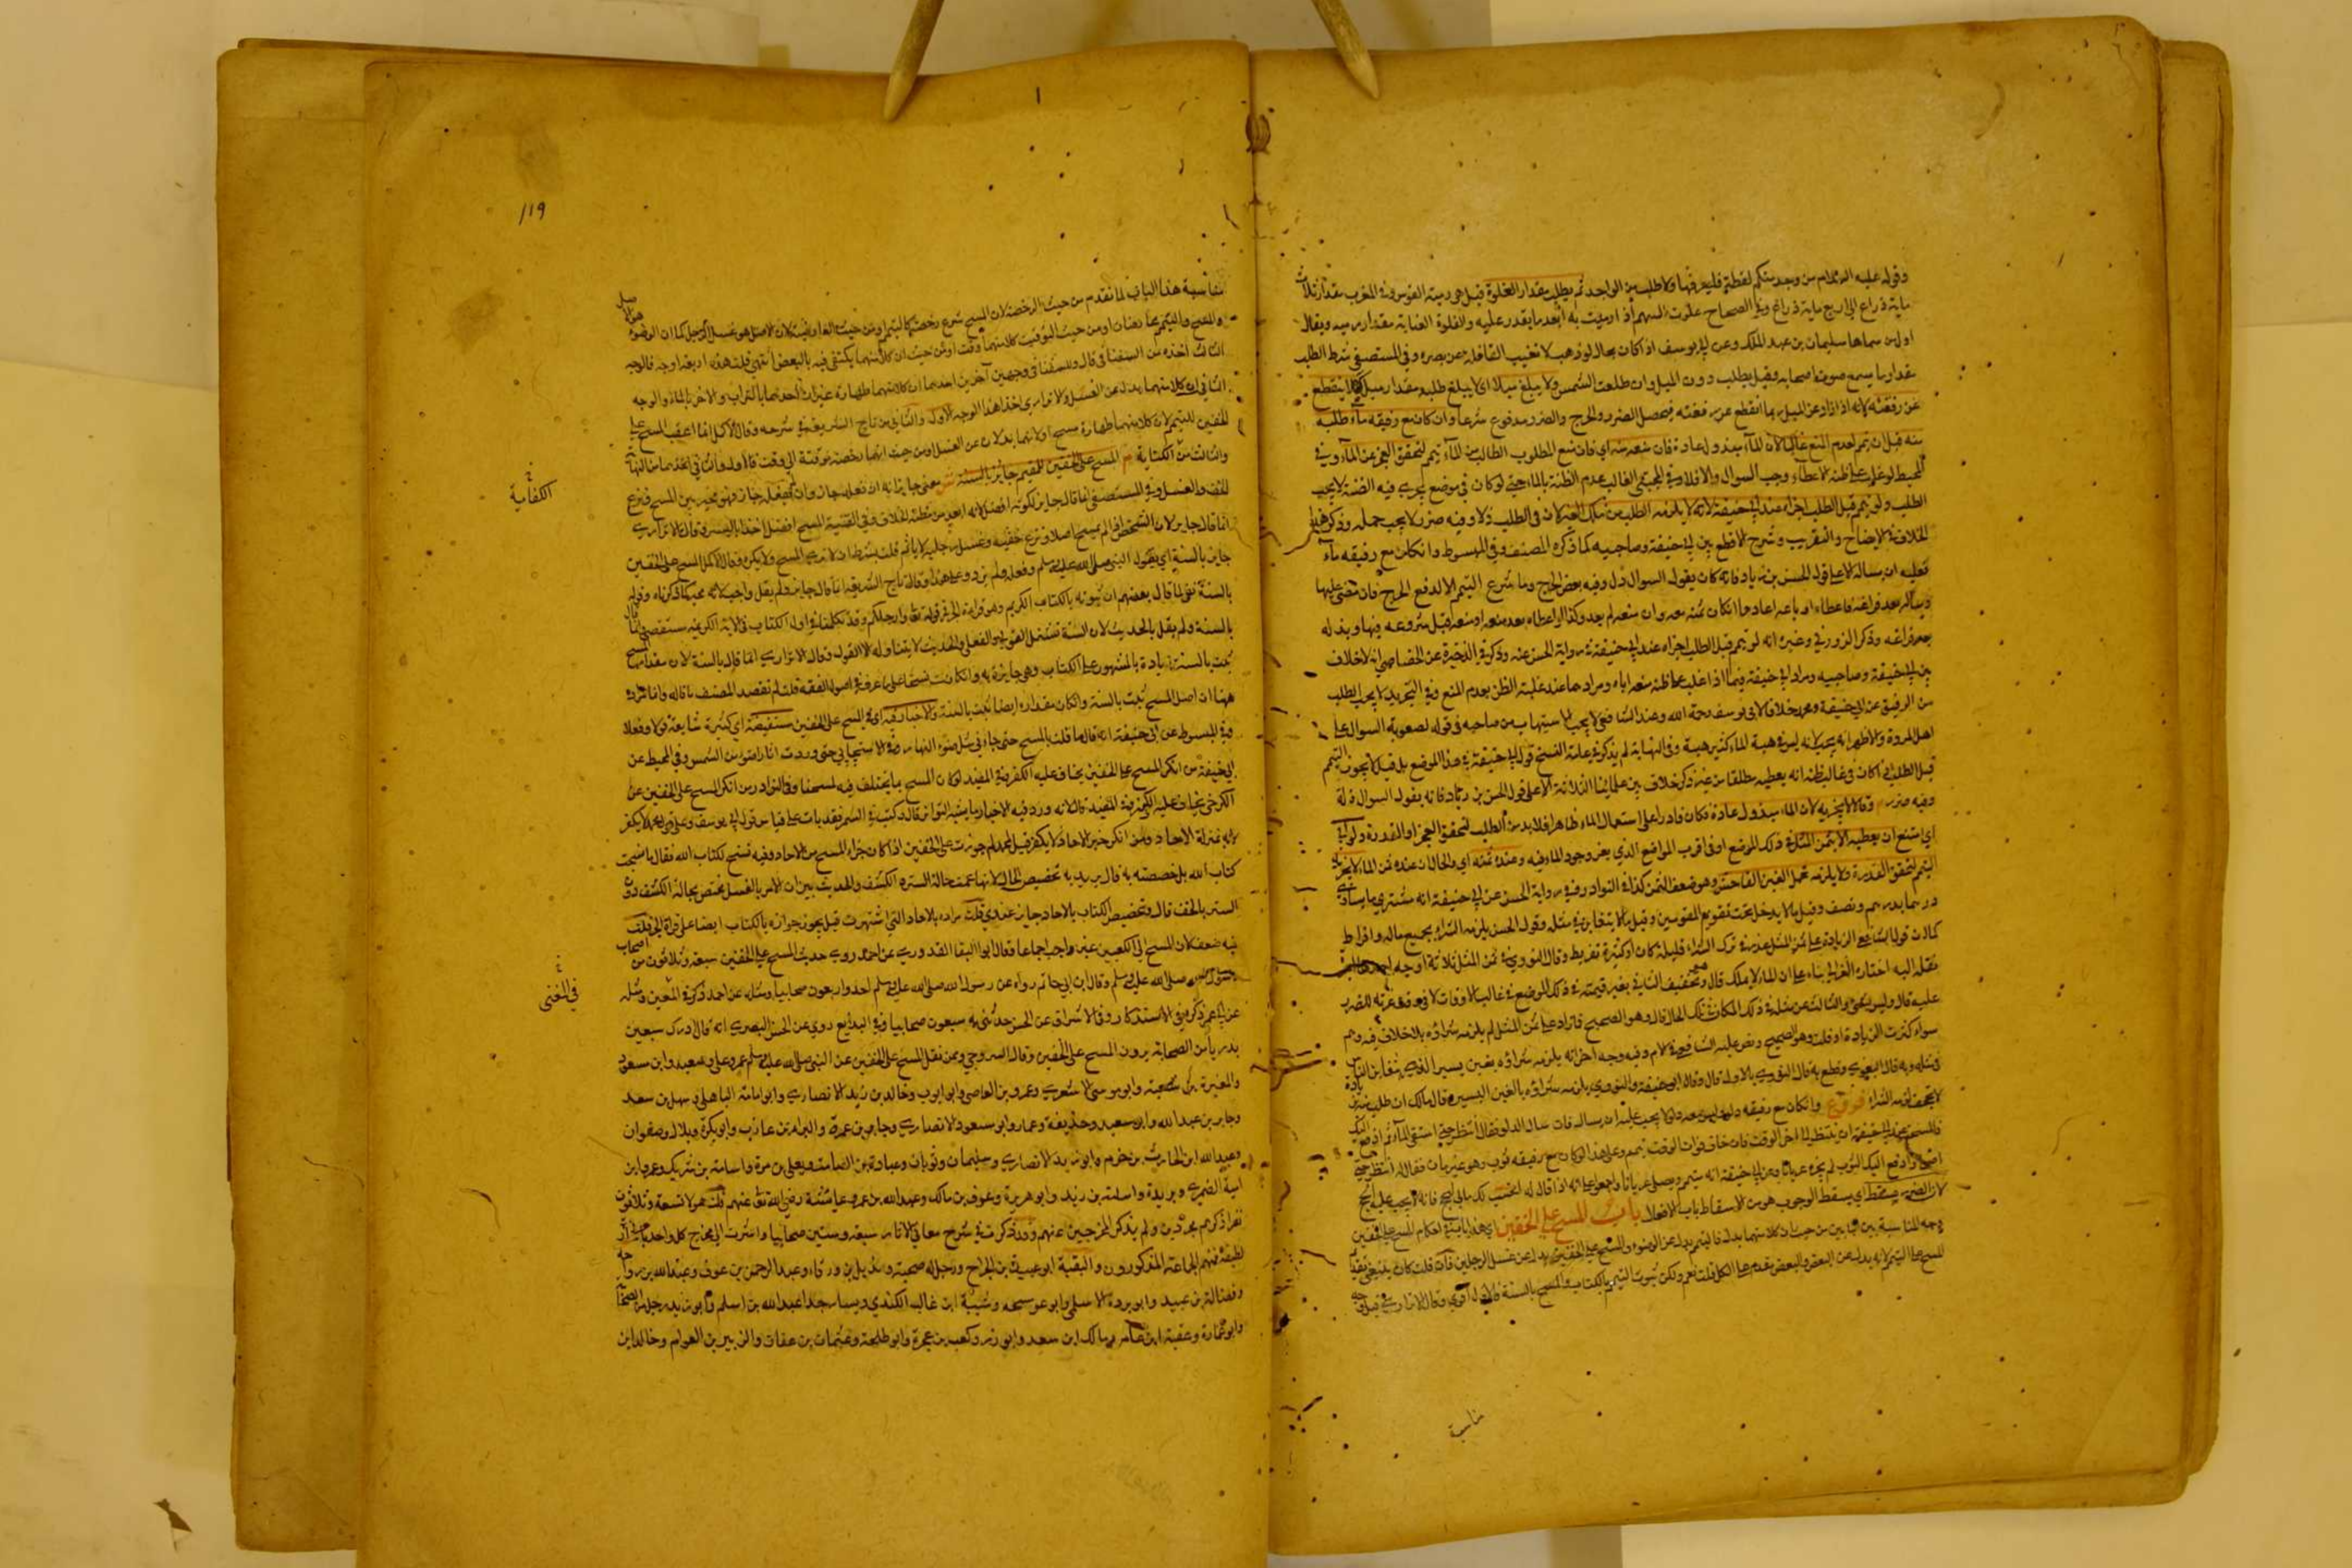 وقوله عليه السلام من وجد منكم لقطة فليعرفها ولا طلب من الواجد ثم يطلب مقدار الغلوة قيل هي رمية القوس وفي المغرب مقدار ثلاث
ماية ذراع الي اربع ماية ذراع وفي الصحاح غلوت السهم اذا رميت به ابعد ما يقدر عليه والغلوة الغاية مقدار رميه ويقال
اول من سماها سليمان بن عبد الملك وعن ابي يوسف اذا كان بحال لو ذهب لا تغيب القافلة عن بصره وفي المستصفي شرط الطلب
مقدار ما يسمع صوت اصحابه وقيل يطلب دون الميل وان طلعت الشمس ولا يبلغ ميلا اي لا يبلغ طلبه مقدار ميل كيلا ينقطع
عن رفقته لانه اذا زاد عن الميل ربما انقطع عن رفقته فيحصل الضرر والحرج والضرر مدفوع شرعا وان كان مع رفيقه ماء طلبه
منه قبل ان يتيمم لعدم المنع غالبا لان الماء مبذول عادة فان منعه منه اي فان منع المطلوب الطالب من الماء تيمم لتحقق العجز عن الماء وفي
المحيط لو غلب علي ظنه الاعطاء وجب السوال والا فلا
الطلب ولو تيمم قبل الطلب اجزاه عند ابي حنيفة لانه لا يلزمه الطلب من ملك الغير لان في الطلب ذلا وفيه ضرر لا يجب حمله وذكر هذا
الخلاف في الايضاح والتقريب وشرح الاقطع بين ابي حنيفة وصاحبيه كما ذكره المصنف وفي المبسوط وان كان مع رفيقه ماء
فعليه ان يساله الا علي قول الحسن بن زياد فانه كان يقول السوال ذل وفيه بعض الحرج وما شرع التيمم الا لدفع الحرج فان مضي عليها
وساله بعد فراغه فاعطاه او باعه اعادها ان كان ثمنه معه وان منعه لم يعد وكذا لو اعطاه بعد منعه او منعه قبل شروعه فيها وبذله
بعد فراغه وذكر الزوزني وغيره انه لو تيمم قبل الطلب اجزاه عند ابي حنيفة في رواية الحسن عنه وذكر في الذخيرة عن الجصاص انه لا خلاف
بين ابي حنيفة وصاحبيه ومراد ابي حنيفة فيما اذا غلب علي ظنه منعه اياه ومرادهما عند غلبة الظن بعدم المنع وفي التجريد لا يجب الطلب
من الرفيق عن ابي حنيفة ومحمد خلافا لابي يوسف رحمه الله وعند الشافعي لا يجب الاستيهاب من صاحبه في قوله لصعوبة السوال علي
اهل المروة والاظهر انه يجب لانه ليس في هبة الماء كثير هبة وفي النهاية لم يذكر في عامة النسخ قول ابي حنيفة في هذا الموضع بل قيل لا يجوز التيمم
قبل الطلب اذا كان في غالب ظنه انه يعطيه مطلقا من غير ذكر خلاف بين علمائنا الثلاثة الا علي قول الحسن بن زياد فانه يقول السوال ذلة
وفيه ضرر وقالا لا يجزيه لان الماء مبذول عادة فكان قادرا علي استعمال الماء ظاهرا فلا بد من الطلب لتحقق العجز او القدرة ولو ابي
اي امتنع ان يعطيه الا بثمن المثل في ذلك الموضع او في اقرب المواضع الذي يعز وجود الماء فيه وعنده ثمنه اي والحال ان عنده ثمن الماء لا يجزيه
التيمم لتحقق القدرة ولا يلزمه تحمل الغبن الفاحش وهو ضعف الثمن كذا في النوادر وفي رواية الحسن عن ابي حنيفة انه يشتري ما يساوي
درهما بدرهم ونصف وقيل ما لا يدخل تحت تقويم المقومين وقيل ما لا يتغابن في مثله وقول الحسن يلزمه الشراء بجميع ماله وافراط
كما ان قول الشافعي الزيادة علي ثمن المثل عذر في ترك الشراء قليلة كان او كثيرة تفريط وقال النووي في ثمن المثل ثلاثة اوجه
نقله اليه اختاره الغزالي بناء علي ان الماء لا يملك قال وهو ضعيف الثاني بغير قيمته في ذلك الموضع في غالب الاوقات
عليه قال وليس بشيء والثالث ثمن مثله في ذلك المكان في تلك الحال قال وهو الصحيح فان زاد علي ثمن المثل لم يلزمه شراؤه بلا خلاف فيه وهم
سواء كثرت الزيادة او قلت وهو الصحيح ونص عليه الشافعي في الام وفيه وجه اخر انه يلزمه شراؤه بغبن يسير الذي يتغابن الناس
في مثله وبه قال البغوي وقطع به قال النووي بالاول قال وقال ابو حنيفة والثوري يلزمه شراؤه بالغبن اليسير وقال مالك ان طلب منه زيادة
لا تجحف لزمه الشراء فروع وان كان مع رفيقه دلو وليس معه دلو لا يجب عليه ان يساله فان سال الدلو فقال انتظر حتي استقي الماء ثم ادفعه اليك
فالمستحب عند ابي حنيفة ان ينتظر الي اخر الوقت فان خاف فوات الوقت تيمم وعلي هذا لو كان مع رفيقه ثوب وهو عريان فقال له انتظر حتي
اصلي وادفع اليك الثوب
لان الضرر مسقط اي يسقط الوجوب هو من الاسقاط باب الافعال باب المسح علي الخفين اي هذا باب في احكام المسح علي الخفين
وجه المناسبة بين البابين من حيث ان كلا منهما بدل فالتيمم بدل عن الوضوء والمسح علي الخفين بدل عن غسل الرجلين فان قلت كان ينبغي تقديم
المسح علي التيمم لانه بدل عن البعض والبعض يقدم علي الكل قلت نعم ولكن ثبوت التيمم بالكتاب والمسح بالسنة فالاول اقوي وقال الاترازي في قوله وجه
مناسبة
119
مناسبة هذا الباب لما تقدم من حيث الرخصة لان المسح شرع رخصة كالتيمم
والمسح والتيمم عارضان او من حيث التوقيت كلا منهما وقت او من حيث ان كلا منهما يكتفي فيه بالبعض انتهي قلت هذه اربعة اوجه فالوجه
الثالث اخذه من السغناقي قال والسغناقي وجهين آخرين احدهما ان كلا منهما طهارة غير ان احدهما بالتراب والاخر بالماء والوجه
الثاني ان كلا منهما بدل عن الغسل والاترازي اخذ هذا الوجه الاول والثاني من تاج الشريعة في شرحه وقال الاكمل انما اعقب المسح علي
الخفين للتيمم لان كلا منهما طهارة مسح اولانهما بدلان عن الغسل او من حيث انهما رخصة موقتة الي وقت فالاول والثاني اخذهما من النهاية
والثالث من الكفاية م المسح علي الخفين للمقيم جايز بالسنة ش
الكفاية
للخف والغسل وفي المستصفي انما قال جايز لكونه افضل لانه ابعد من مظنة الخلاف وفي القنية المسح افضل اخذا باليسر وقال الاترازي
انما قال جايز لان الشخص اذا لم يمسح اصلا ونزع خفيه وغسل رجليه لا ياثم قلت بشرط ان لا يري المسح ولا ينكره وقال الاكمل المسح علي الخفين
جايز بالسنة اي بقول النبي صلي الله عليه وسلم وفعله
بالسنة نفي لما قال بعضهم ان ثبوته بالكتاب الكريم وهو قراءة الجر في قوله تعالي وارجلكم وقد تكلمنا في اول الكتاب في الاية الكريمة مستقصي
بالسنة ولم يقل بالحديث لان السنة تشتمل القولي والفعلي والحديث لا يتناول الا القول وقال الاترازي انما قال بالسنة لان مقدار المسح
ثبت بالسنة زيادة بالمشهور علي الكتاب وهي جايزة به وان كانت نسخا علي ما عرف في اصول الفقه قلت لم يقصد المصنف ما قاله وانما مراده
ههنا ان اصل المسح ثبت بالسنة وان كان مقداره ايضا ثبت بالسنة والاخبار فيه اي في المسح علي الخفين مستفيضة اي كثيرة شايعة قولا وفعلا
وفي المبسوط عن ابي حنيفة انه قال ما قلت بالمسح حتي جاءني مثل ضوء النهار
ابي حنيفة من انكر المسح علي الخفين يخاف عليه الكفر وفي المفيد لو كان المسح مما يختلف فيه لما مسحنا وفي النوادر من انكر المسح علي الخفين عن
الكرخي يخاف عليه الكفر وفي المفيد قال لانه ورد فيه الاخبار ما يشبه التواتر
لانه بمنزلة الاحاد ومن انكر خبر الاحاد لا يكفر
كتاب الله بل خصصته به قال يريد به تخصيص الحال
الستر بالخف قال وتخصيص الكتاب بالاحاد جايز عندي قلت مراده بالاحاد التي اشتهرت قيل يجوز جوازه بالكتاب ايضا علي قراءة الجر قلت
فيه ضعف لان المسح الي الكعبين غير واجب اجماعا وقال ابو البقا القدوري عن احمد روي حديث المسح علي الخفين سبعة وثلاثون من اصحاب
رسول الله صلي الله عليه وسلم وقال ابن ابي حاتم رواه عن رسول الله صلي الله عليه وسلم احد واربعون صحابيا ومثله عن احمد ذكره في المغني ومثله
في المغني
عن ابي عمر ذكره في الاستذكار وفي الاشراف عن الحسن حدثني به سبعون صحابيا وفي البدايع روي عن الحسن البصري انه قال ادركت سبعين
بدريا من الصحابة يرون المسح علي الخفين وقال السروجي وممن نقل المسح علي الخفين عن النبي صلي الله عليه وسلم عمر وعلي وسعيد وابن مسعود
والمغيرة بن شعبة وابو موسي الاشعري وعمرو بن العاص وابو ايوب وخالد بن زيد الانصاري وابو امامة الباهلي وسهل بن سعد
وجابر بن عبد الله وابو سعيد وحذيفة وعمار وابو مسعود الانصاري وجابر بن سمرة والبراء بن عازب وابو بكرة وبلال وصفوان
وعبد الله ابن الحارث بن حزم وابو زيد الانصاري وسليمان وثوبان وعبادة بن الصامت ويعلي بن مرة واسامة بن شريك وعمرو بن
امية الضمري وبريدة واسامة بن زيد وابو هريرة وعوف بن مالك وعبد الله بن عمر وعايشة رضي الله تعالي عنهم قلت هؤلاء تسعة وثلاثون
نفرا ذكرهم مجردين ولم يذكر المخرجين عنهم وقد ذكرت في شرح معاني الاثار سبعة وستين صحابيا واشرت الي مخرج كل واحد
لطيفة فمنهم الجماعة المذكورون والبقية ابو عبيدة بن الجراح ورجل له صحبة وبديل بن ورقاء وعبد الرحمن بن عوف وعبد الله بن رواحة
وفضالة بن عبيد وابو بردة الاسلمي وابو عوسجة وشيبة ابن غالب الكندي ويسار جد عبد الله بن اسلم وابو زيد رجل من الصحابة
وابو عمارة وعقبة ابن عامر ومالك ابن سعد وابو ذر وكعب بن عجرة وابو طلحة وعثمان بن عفان والزبير بن العوام وخالد ابن